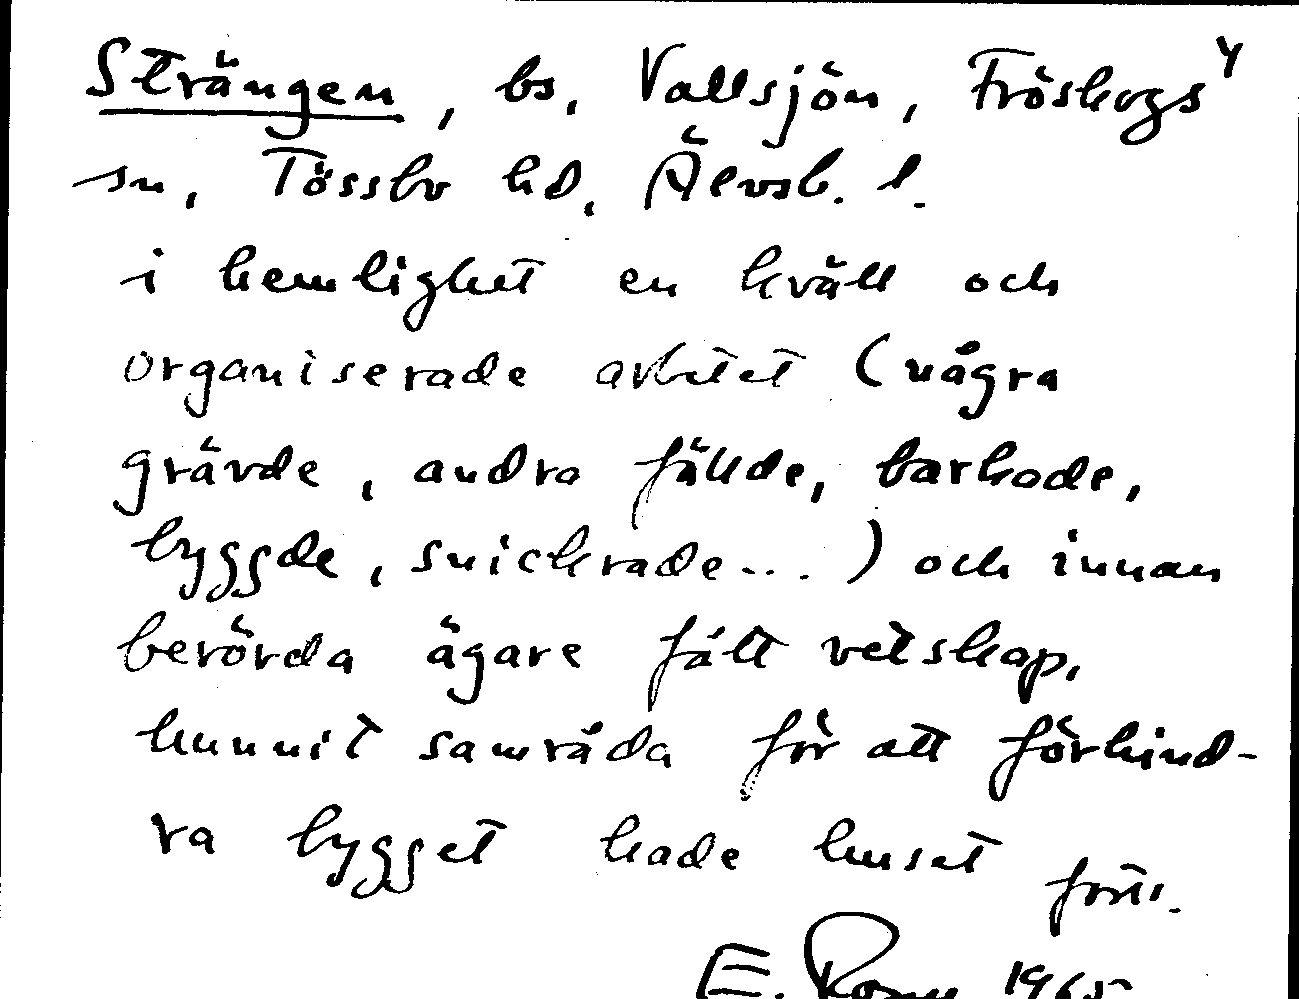 Strängen, bs. Vallsjön, Fröskogs 4
sn, Tössbo hd, Älvsb. l.
i hemlighet en kväll och
organiserade arbetet (några
grävde, andra fällde, barkade,
byggde, snickrade...) och innan
berörda ägare fått vetskap,
hunnit samråda för att förhind-
ra bygget hade huset
E. 1965